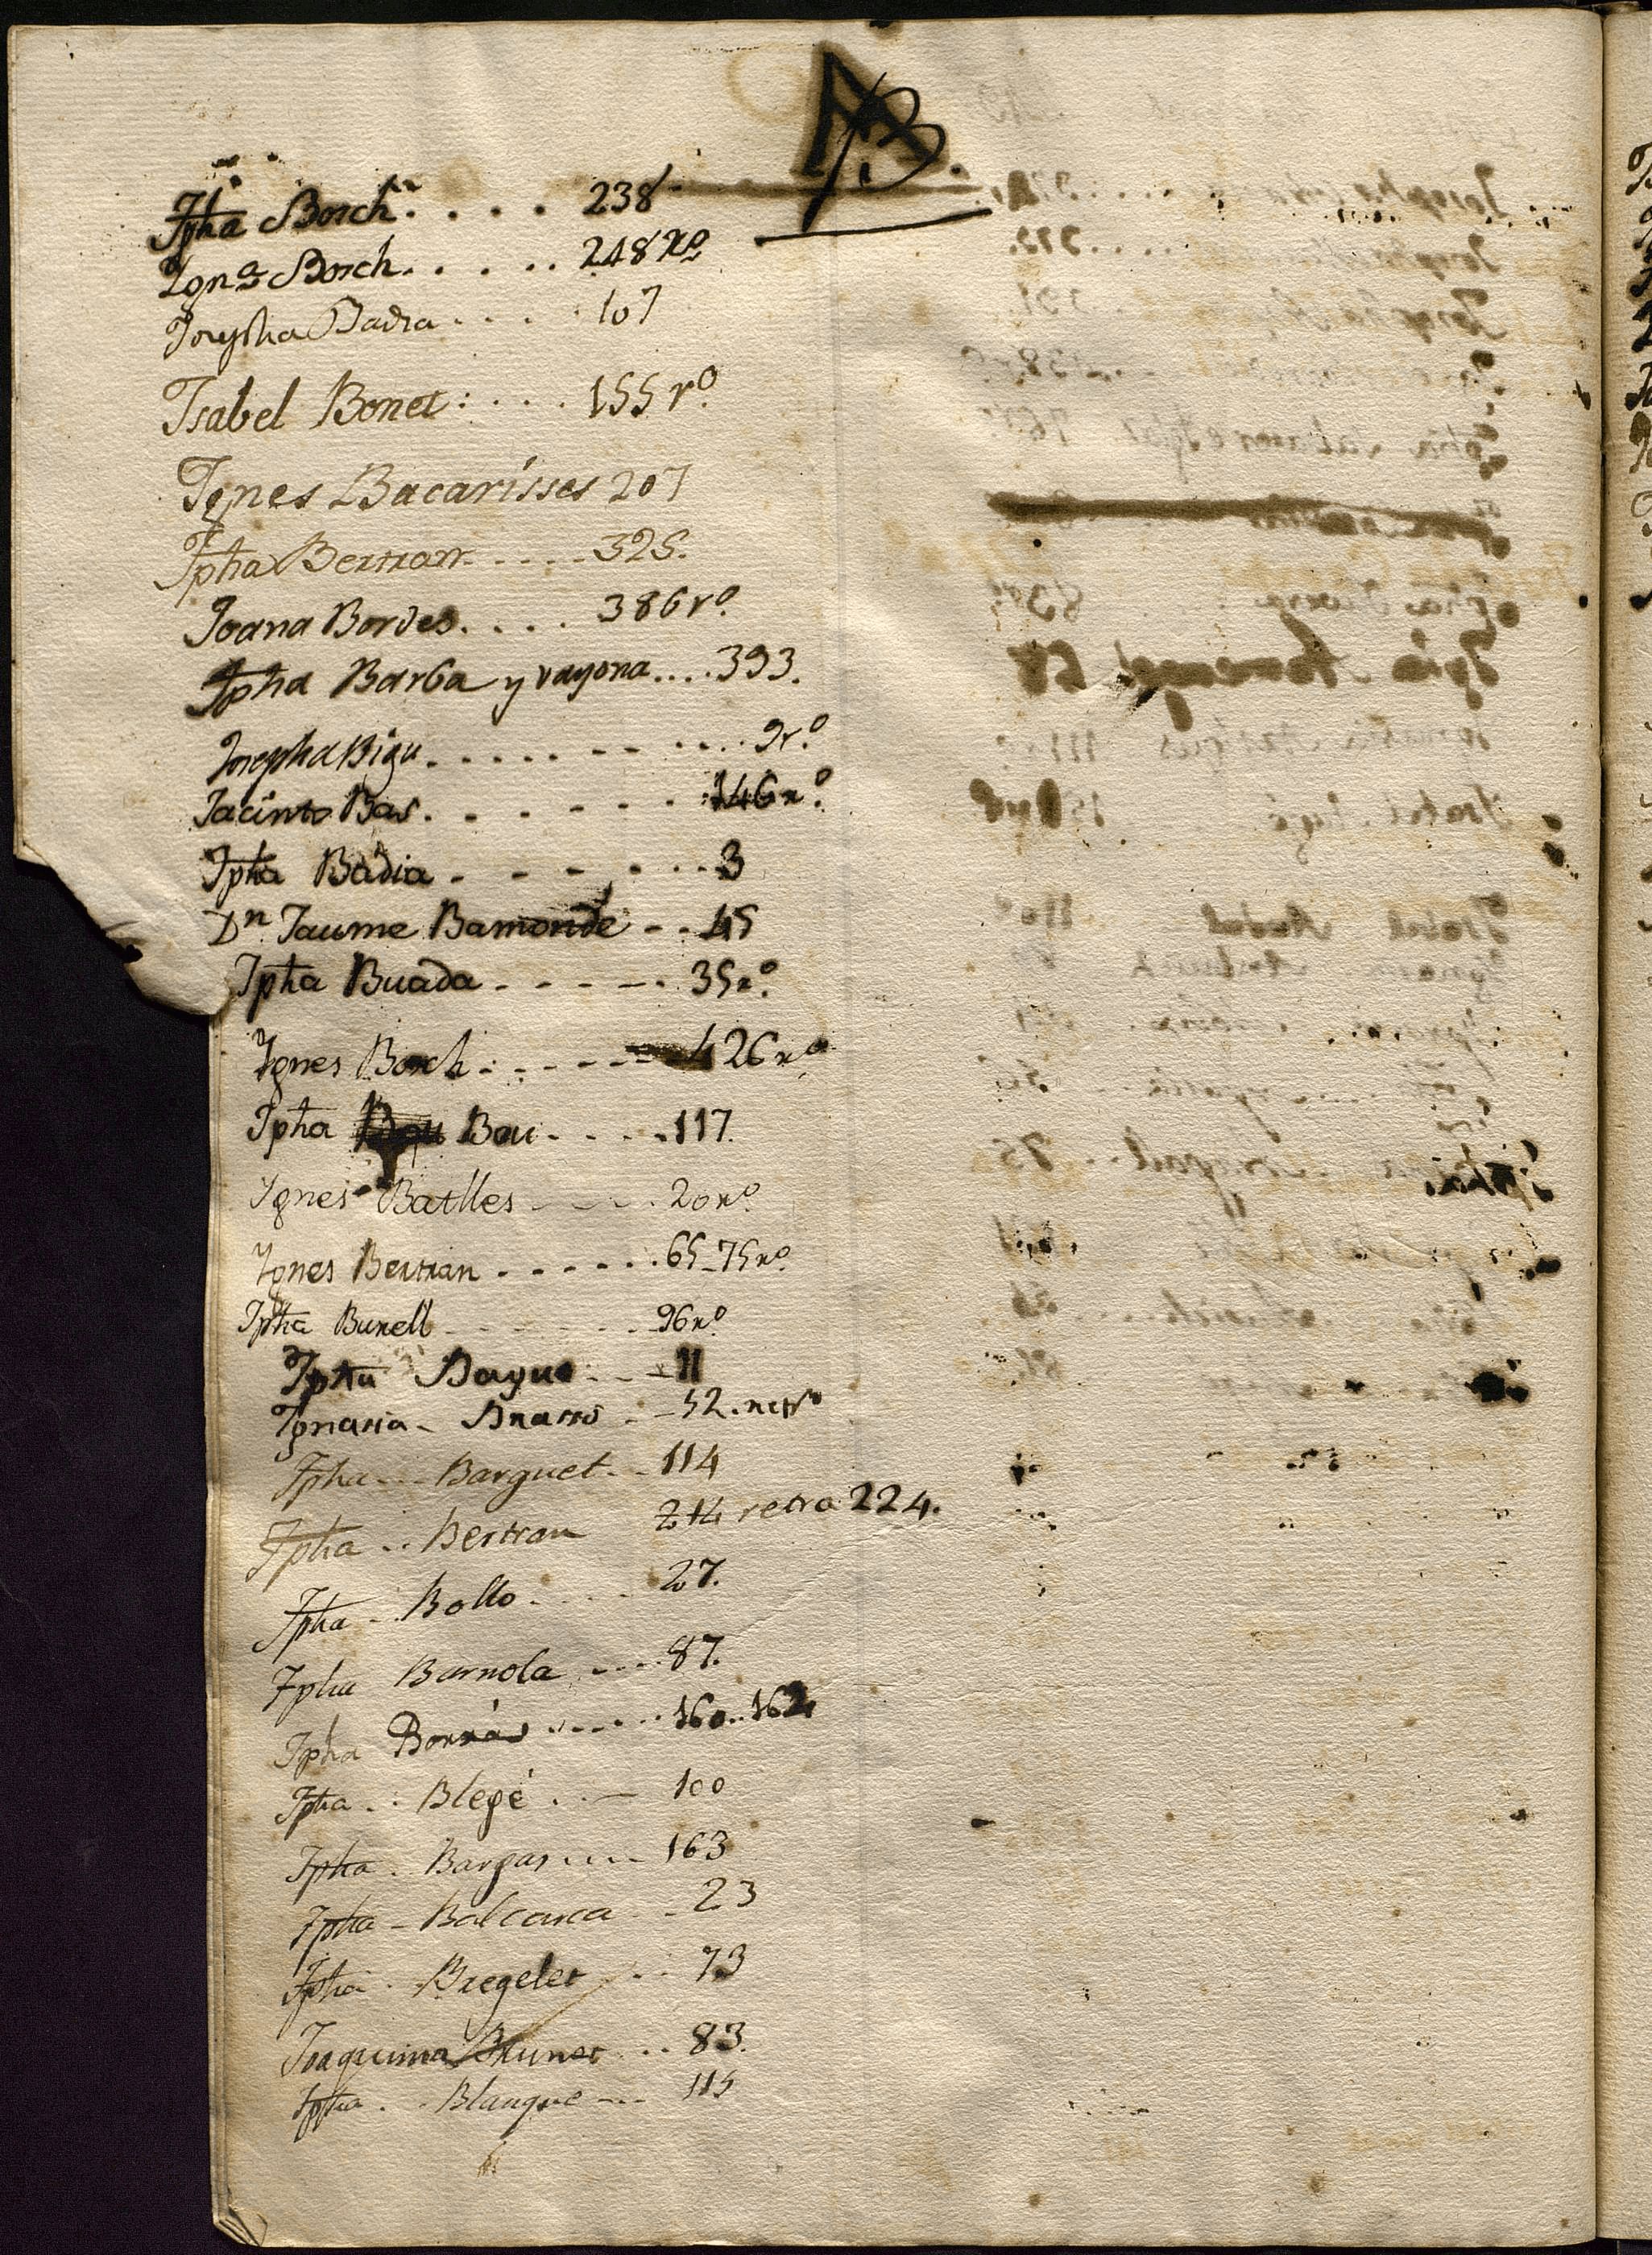 B.
Jpha Bosch.... 238
Ign.ª Bosch..... 248 rº
Josepha Badia.... 107
Isabel Bonet:.... 155 rº
Ignes Bacarisses 207
Jpha Bertran.....325.
Joana Bordes..... 386 rº
Jpha Barba y vayona....393.
Josepha Bigu.......... 9rº
Jacinto Bas....... 146rº
Jpha Badia - - - - ...3
Dn Jaume Bamonde - - 45
Jpha Buada - - - - - . 35rº
Ignes Bosch:------426rº
Jpha Bou - - - - -117.
Ignes Batlles - - - 20rº
Ignes Bertran - - - - - - .65-75rº
Jpha Burell - - - - - 96rº
Jpha Bague - - - 11
Ignasia - - -52.
Jpha --- Barguet.. -114
Jpha .. Bertran 214 retro 224.
Jpha - Bollo.... 27.
Jpha Barnola ....87.
Jpha Borràs ...... 160..162
Jpha .. Blegé ..- 100
Jpha . Bargas.... 163
Jpha - Balcarca - - 23
Jpha . Bregelet ... 73
Joaquima Brunet ... 83.
Jpha . . Blanque --- 115